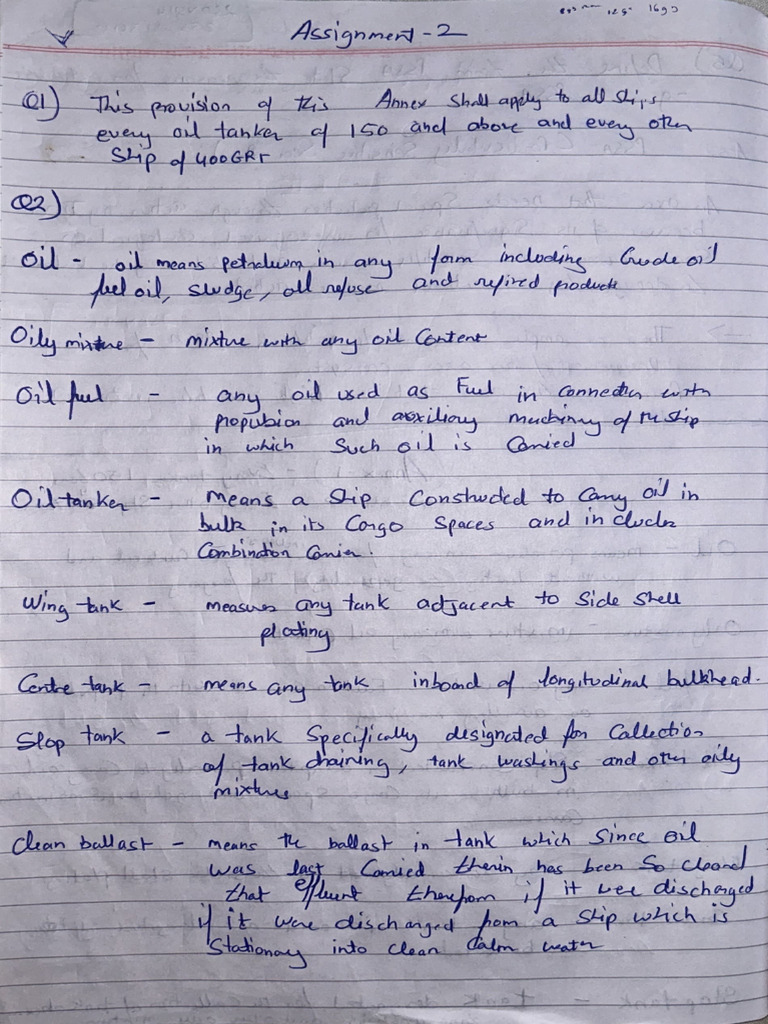 Assignment - 2
Q1) This provision of this Annex shall apply to all ships
every oil tanker of 150 and above and every other
Ship of 400GRT
Q2)
Oil - oil means petroleum in any form including Crude oil
fuel oil, sludge, oil refuse and refined products
Oily mixture - mixture with any oil Content
Oil fuel - any oil used as Fuel in connection with
propulsion and auxiliary machinery of the ship
in which Such oil is Carried
Oil tanker - means a Ship Constructed to Carry oil in
bulk in its Cargo Spaces and includes
Combination Carrier.
Wing tank - measures any tank adjacent to Side Shell
plating
Centre tank - means any tank inboard of longitudinal bulkhead.
Slop tank - a tank Specifically designated for Collection
of tank draining, tank washings and other oily
mixtures
Clean ballast - means the ballast in tank which Since oil
was last Carried therein has been So cleaned
that effluent therefrom if it were discharged
if it were discharged from a Ship which is
Stationary into clean Calm water